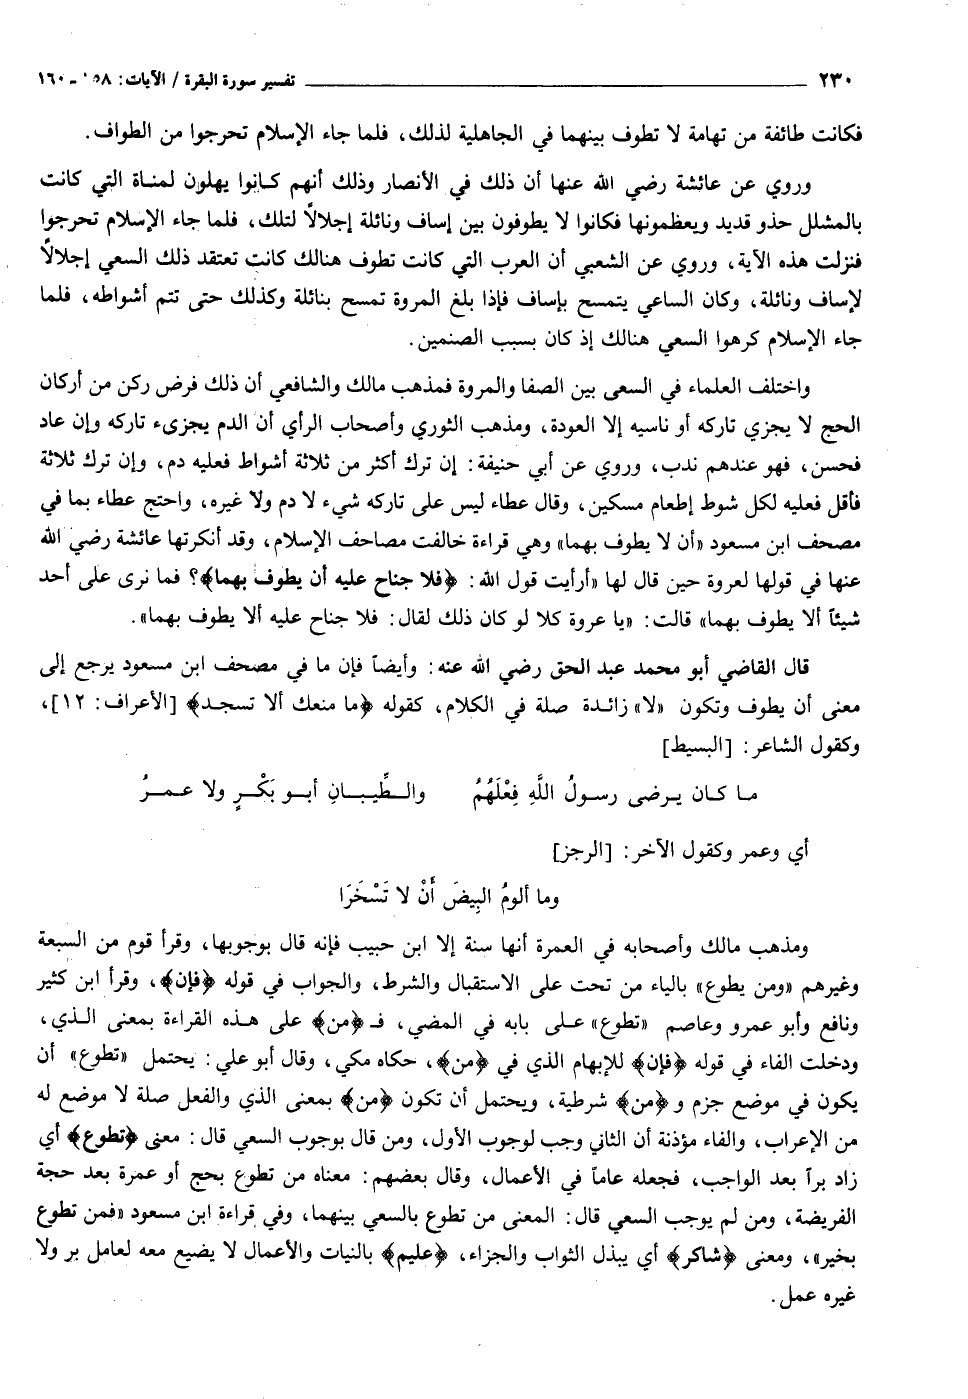 ٢٣٠ ــــــ تفسير سورة البقرة / الآيات: ١٥٨ ـ ١٦٠
فكانت طائفة من تهامة لا تطوف بينهما في الجاهلية لذلك، فلما جاء الإسلام تحرجوا من الطواف.
وروي عن عائشة رضي الله عنها أن ذلك في الأنصار وذلك أنهم كانوا يهلون لمناة التي كانت
بالمشلل حذو قديد ويعظمونها فكانوا لا يطوفون بين إساف ونائلة إجلالاً لتلك، فلما جاء الإسلام تحرجوا
فنزلت هذه الآية، وروي عن الشعبي أن العرب التي كانت تطوف هنالك كانت تعتقد ذلك السعي إجلالاً
لإساف ونائلة، وكان الساعي يتمسح بإساف فإذا بلغ المروة تمسح بنائلة وكذلك حتى تتم أشواطه، فلما
جاء الإسلام كرهوا السعي هنالك إذ كان بسبب الصنمين.
واختلف العلماء في السعي بين الصفا والمروة فمذهب مالك والشافعي أن ذلك فرض ركن من أركان
الحج لا يجزي تاركه أو ناسيه إلا العودة، ومذهب الثوري وأصحاب الرأي أن الدم يجزىء تاركه وإن عاد
فحسن، فهو عندهم ندب، وروي عن أبي حنيفة: إن ترك أكثر من ثلاثة أشواط فعليه دم، وإن ترك ثلاثة
فأقل فعليه لكل شوط إطعام مسكين، وقال عطاء ليس على تاركه شيء لا دم ولا غيره، واحتج عطاء بما في
مصحف ابن مسعود «أن لا يطوف بهما» وهي قراءة خالفت مصاحف الإسلام، وقد أنكرتها عائشة رضي الله
عنها في قولها لعروة حين قال لها «أرأيت قول الله: ﴿فلا جناح عليه أن يطوف بهما﴾؟ فما نرى على أحد
شيئاً ألا يطوف بهما» قالت: «يا عروة كلا لو كان ذلك لقال: فلا جناح عليه ألا يطوف بهما».
قال القاضي أبو محمد عبد الحق رضي الله عنه: وأيضاً فإن ما في مصحف ابن مسعود يرجع إلى
معنى أن يطوف وتكون «لا» زائدة صلة في الكلام، كقوله ﴿ما منعك ألا تسجد﴾ [الأعراف: ١٢]،
وكقول الشاعر: [البسيط]
ما كان يرضى رسولُ اللَّهِ فِعْلَهُمُ والطِّيبانِ أبو بَكْرٍ ولا عمرُ
أي وعمر وكقول الآخر: [الرجز]
وما ألومُ البِيضَ أَنْ لا تَسْخَرَا
ومذهب مالك وأصحابه في العمرة أنها سنة إلا ابن حبيب فإنه قال بوجوبها، وقرأ قوم من السبعة
وغيرهم «ومن يطوع» بالياء من تحت على الاستقبال والشرط، والجواب في قوله ﴿فإن﴾، وقرأ ابن كثير
ونافع وأبو عمرو وعاصم «تطوع» على بابه في المضي، فـ ﴿من﴾ على هذه القراءة بمعنى الذي،
ودخلت الفاء في قوله ﴿فإن﴾ للإبهام الذي في ﴿من﴾، حكاه مكي، وقال أبو علي: يحتمل «تطوع» أن
يكون في موضع جزم و ﴿من﴾ شرطية، ويحتمل أن تكون ﴿من﴾ بمعنى الذي والفعل صلة لا موضع له
من الإعراب، والفاء مؤذنة أن الثاني وجب لوجوب الأول، ومن قال بوجوب السعي قال: معنى ﴿تطوع﴾ أي
زاد براً بعد الواجب، فجعله عاماً في الأعمال، وقال بعضهم: معناه من تطوع بحج أو عمرة بعد حجة
الفريضة، ومن لم يوجب السعي قال: المعنى من تطوع بالسعي بينهما، وفي قراءة ابن مسعود «فمن تطوع
بخير»، ومعنى ﴿شاكر﴾ أي يبذل الثواب والجزاء، ﴿عليم﴾ بالنيات والأعمال لا يضيع معه لعامل بر ولا
غيره عمل.